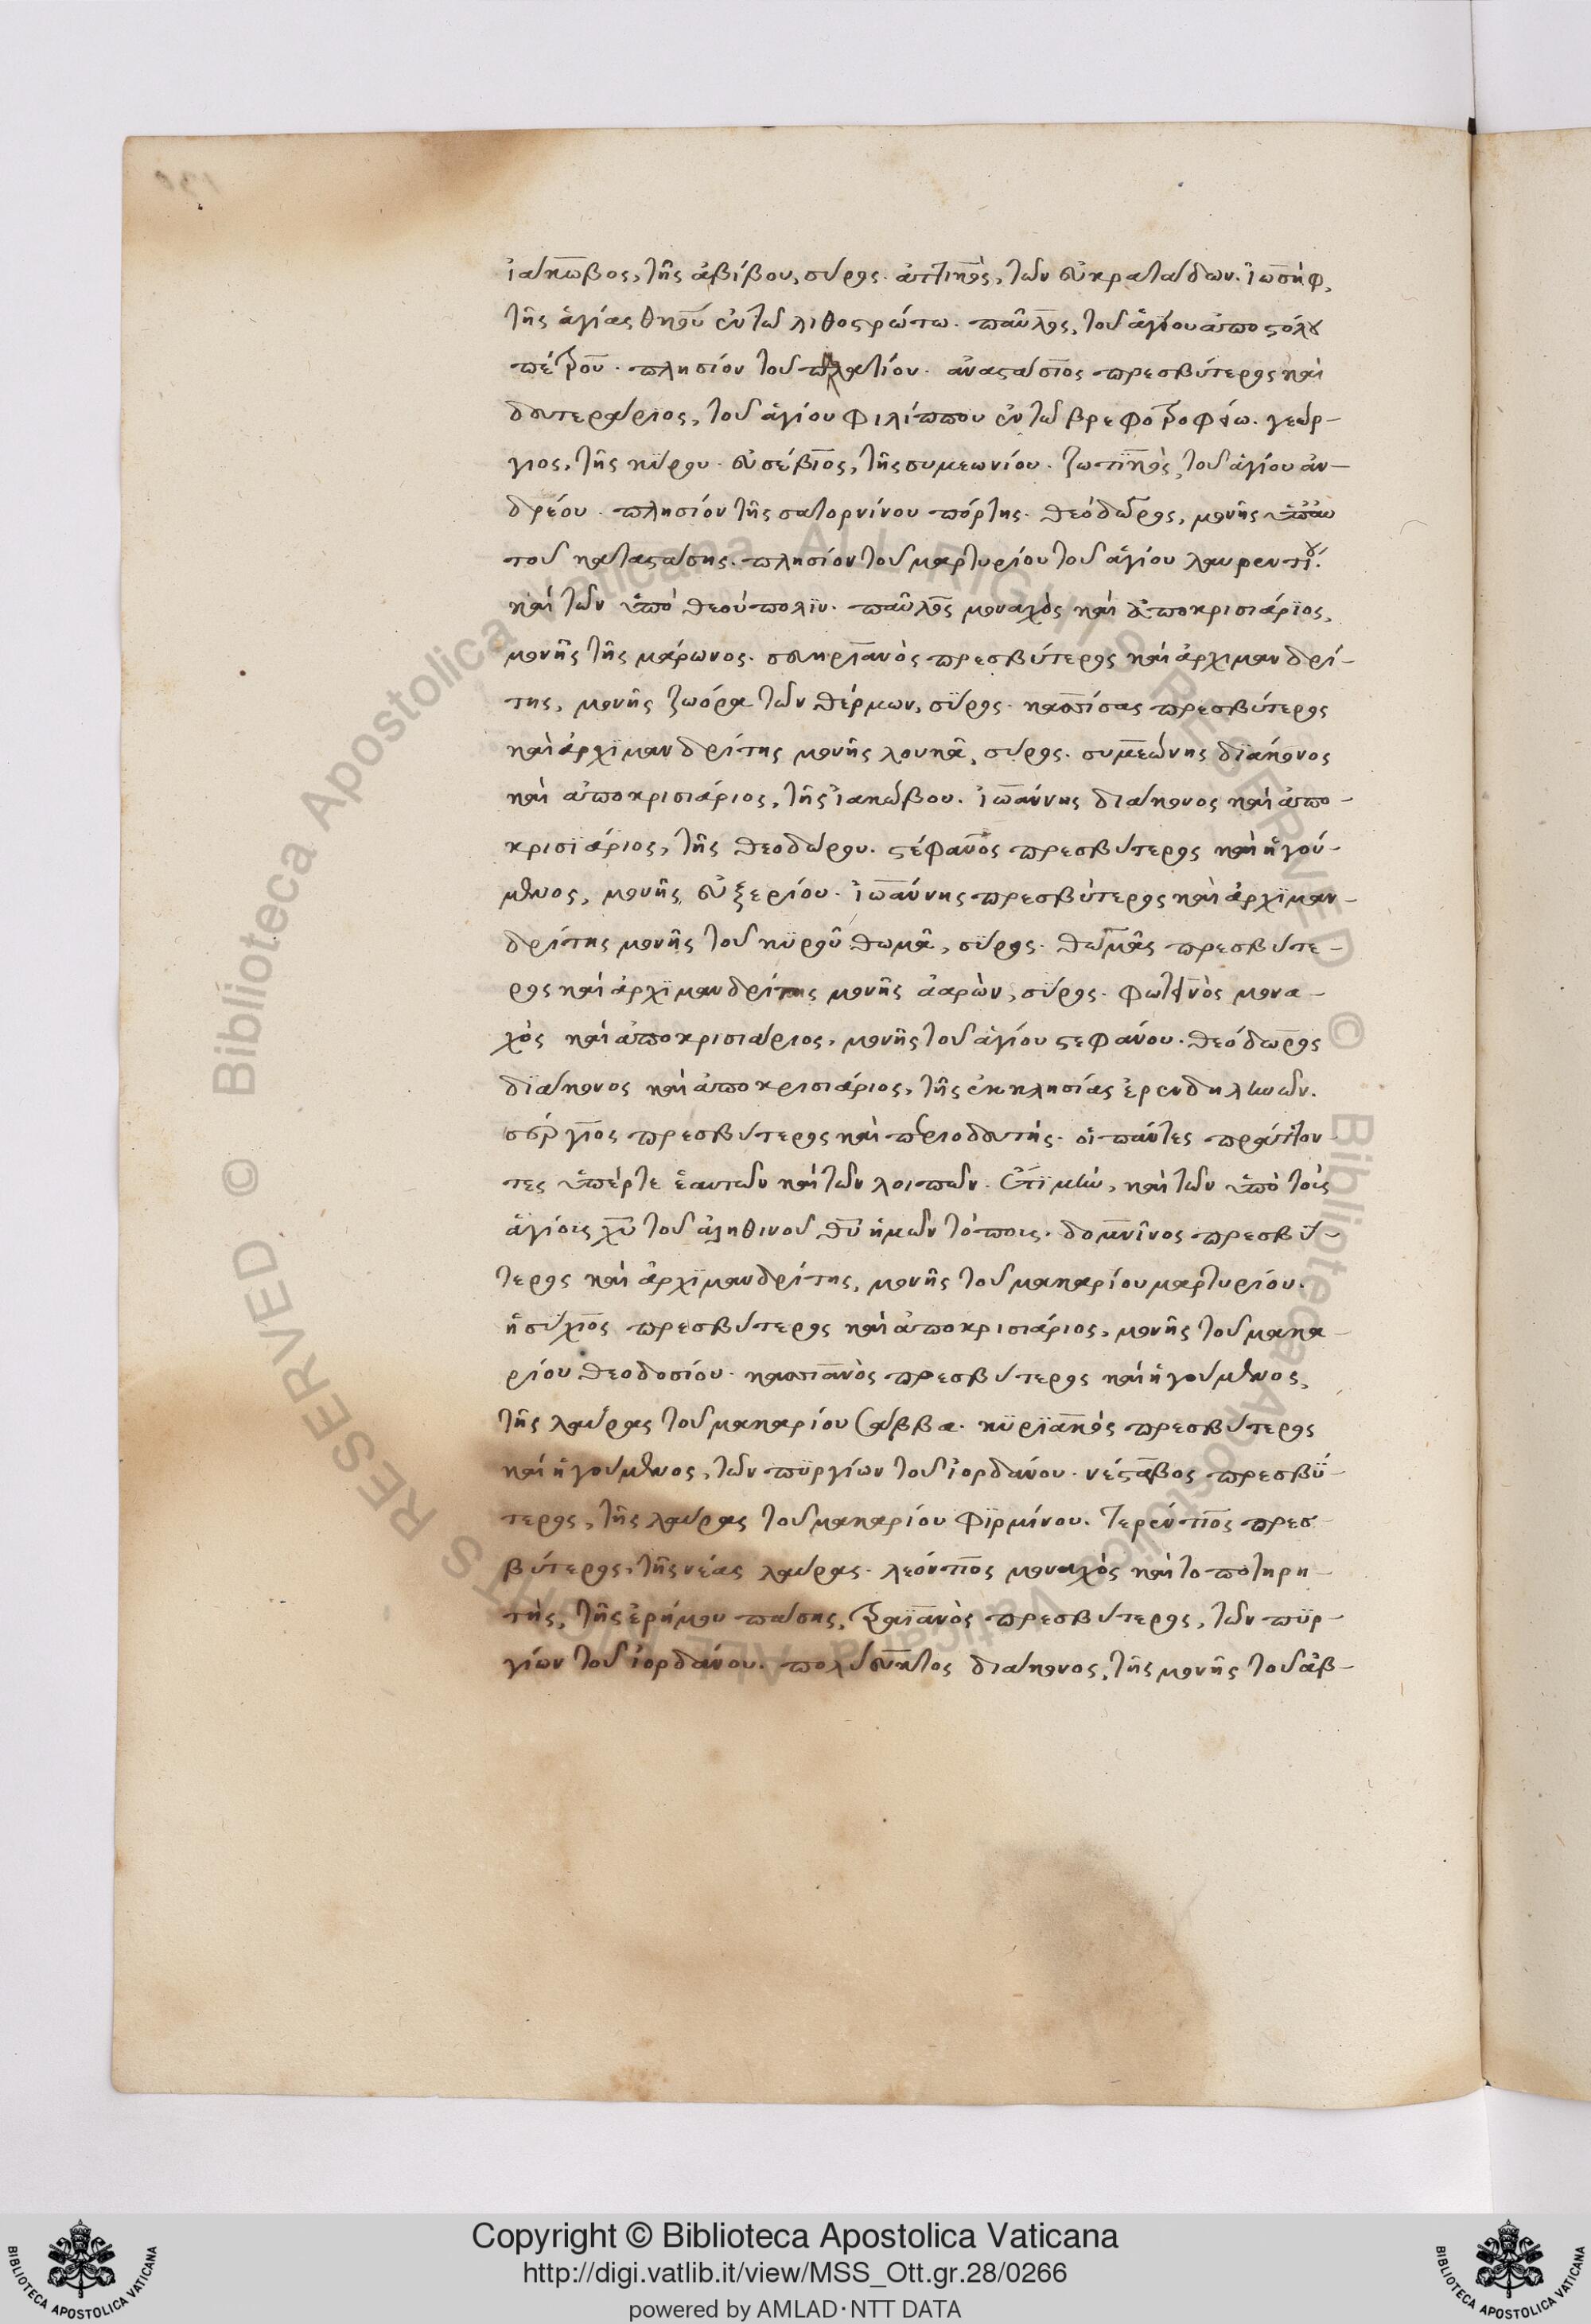 ἰάκωβος, τῆς ἀβίβου, σύρος. ἀττικὸς, τῶν εὐκραταδων. ἰωσὴφ,
τῆς ἁγίας θηκοῦ ἐν τῶ λιθοςρώτω. παῦλος, τοῦ ἁγίου ἀποςόλου
πέτρου. πλησίον τοῦ παλατίου. ἀναςάσιος πρεσβύτερος καὶ
δευτεράριος, τοῦ ἁγίου φιλίππου ἐν τῶ βρεφοτροφείω. γεώρ-
γιος, τῆς κύρου. εὐσέβιος, τῆς συμεωνίου. ζωτικὸς, τοῦ ἁγίου ἀν-
δρέου. πλησίον τῆς σατορνίνου πόρτης. θεόδωρος, μονῆς
τοῦ καταςάσης. πλησίον τοῦ μαρτυρίου τοῦ ἁγίου λαυρεντίου.
καὶ τῶν ὑπὸ θεούπολιν. παῦλος μοναχὸς καὶ ἀποκρισιάριος,
μονῆς τῆς μάρωνος. σευηριανὸς πρεσβύτερος καὶ ἀρχιμανδρί-
της, μονῆς ζωόρα τῶν θέρμων, σύρος. κασσίσας πρεσβύτερος
καὶ ἀρχιμανδρίτης μονῆς λουκᾶ, σύρος. συμεώνης διάκονος
καὶ ἀποκρισιάριος, τῆς ἰακώβου. ἰωάννης διάκονος καὶ ἀπο-
κρισιάριος, τῆς θεοδώρου. ςέφανος πρεσβύτερος καὶ ἡγού-
μενος, μονῆς εὐξερίου. ἰωάννης πρεσβύτερος καὶ ἀρχιμαν-
δρίτης μονῆς τοῦ κυροῦ θωμᾶ, σύρος. θωμᾶς πρεσβύτε-
ρος καὶ ἀρχιμανδρίτης μονῆς ἀαρὼν, σύρος. φωτεινὸς μονα-
χὸς καὶ ἀποκρισιάριος, μονῆς τοῦ ἁγίου ςεφάνου. θεόδωρος
διάκονος καὶ ἀποκρισιάριος, τῆς ἐκκλησίας ἐρενδηληνῶν.
σέργιος πρεσβύτερος καὶ περιοδευτής. οἱ πάντες πράττον-
τες ὑπέρ τε ἑαυτῶν καὶ τῶν λοιπῶν. ἔτι μὴν, καὶ τῶν ὑπὸ τοῖς
ἁγίοις χυ τοῦ ἀληθινοῦ θυ ἡμῶν τόποις. δομνῖνος πρεσβύ-
τερος καὶ ἀρχιμανδρίτης, μονῆς τοῦ μακαρίου μαρτυρίου.
ἡσύχιος πρεσβύτερος καὶ ἀποκρισιάριος, μονῆς τοῦ μακα-
ρίου θεοδοσίου. κασσιανὸς πρεσβύτερος καὶ ἡγούμενος,
τῆς λαύρας τοῦ μακαρίου σάββα. κυριακὸς πρεσβύτερος
καὶ ἡγούμενος, τῶν πυργίων τοῦ ἰορδάνου. νέςαβος πρεσβύ-
τερος, τῆς λαύρας τοῦ μακαρίου φιρμίνου. τερέντιος πρεσ-
βύτερος, τῆς νέας λαύρας. λεόντιος μοναχὸς καὶ τοποτηρη-
τὴς, τῆς ἐρήμου πάσης, τραϊανὸς πρεσβύτερος, τῶν πυρ-
γίων τοῦ ἰορδάνου. πολύευκτος διάκονος, τῆς μονῆς τοῦ ἀβ-
Copyright © Biblioteca Apostolica Vaticana
http://digi.vatlib.it/view/MSS_Ott.gr.28/0266
powered by AMLAD·NTT DATA